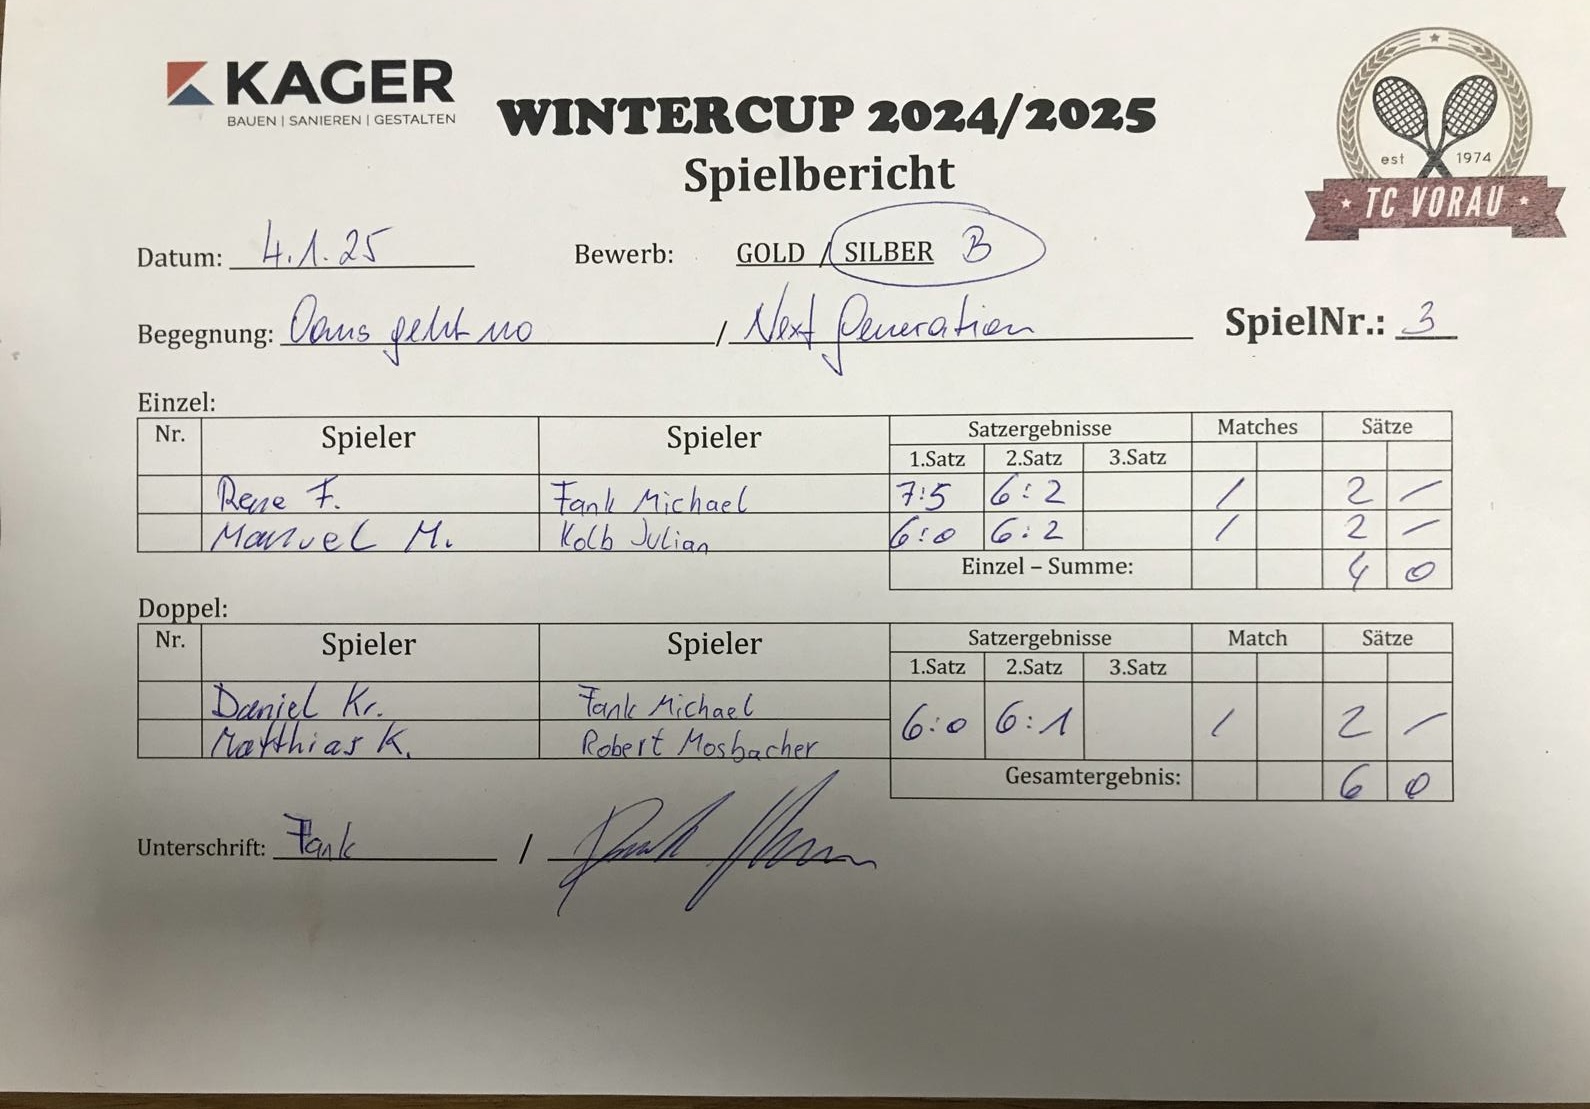 KAGER
BAUEN | SANIEREN | GESTALTEN
WINTERCUP 2024/2025
Spielbericht
est 1974
TC VORAU
Datum: 4.1.25 Bewerb: GOLD / SILBER B
Begegnung: Oans geht no / Next Generation SpielNr.: 3
Einzel:
Nr. Spieler Spieler Satzergebnisse Matches Sätze
1.Satz 2.Satz 3.Satz
Rene F. Fank Michael 7:5 6:2 / 2 –
Manuel M. Kolb Julian 6:0 6:2 / 2 –
Einzel – Summe: 4 0
Doppel:
Nr. Spieler Spieler Satzergebnisse Match Sätze
1.Satz 2.Satz 3.Satz
Daniel Kr. Fank Michael 6:0 6:1 / 2 –
Matthias K. Robert Mosbacher
Gesamtergebnis: 6 0
Unterschrift: Fank /